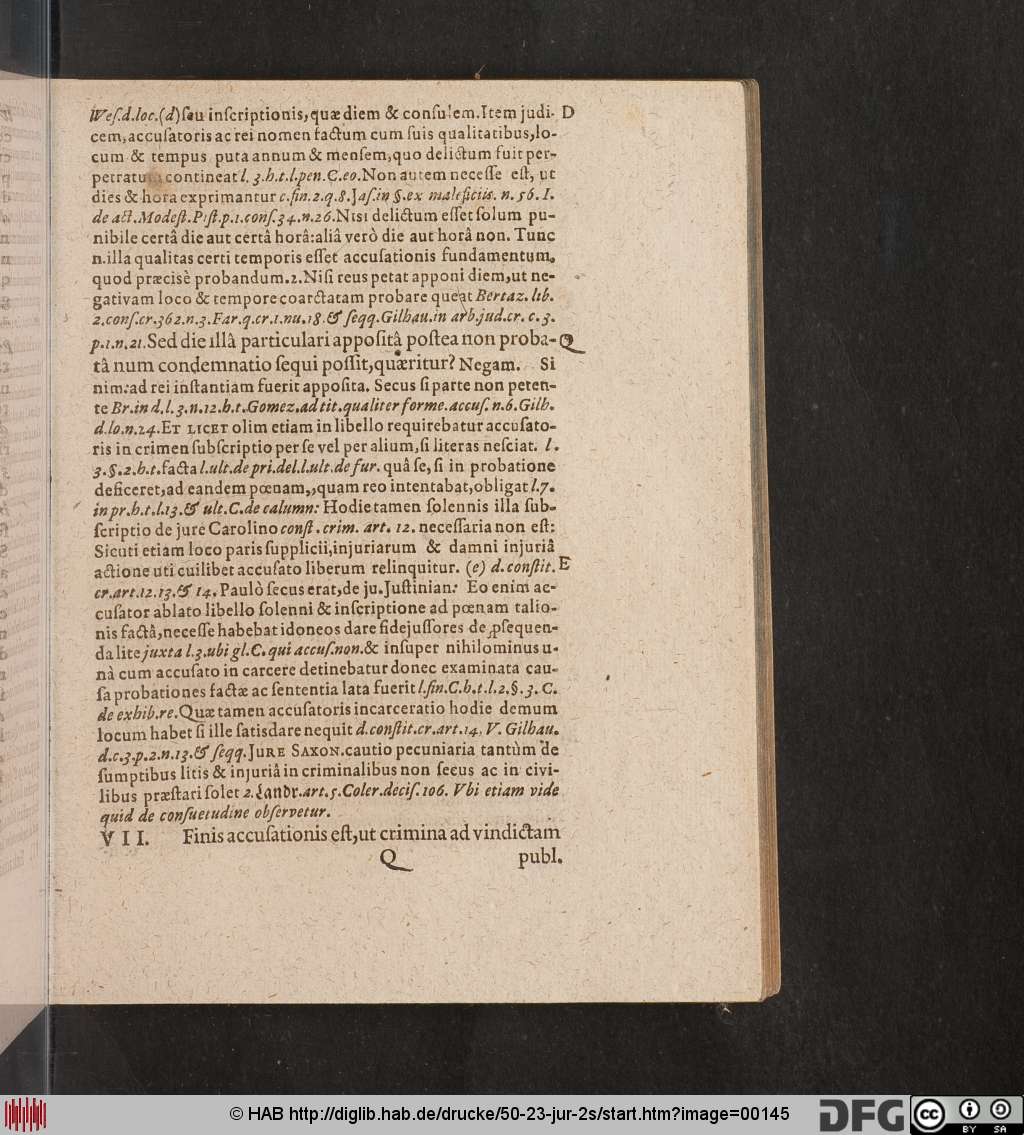 Wes.d.loc.(d)seu inscriptionis,quæ diem & consulem.Item judi- D
cem,accusatoris ac rei nomen factum cum suis qualitatibus,lo-
cum & tempus puta annum & mensem,quo delictum fuit per-
petratum contineat l. 3.h.t.l.pen.C.eo.Non autem necesse est, ut
dies & hora exprimantur c.fin.2.q.8.Jas.in §.ex maleficiis. n. 56. I.
de act.Modest.Pist.p.1.cons.34.n.26.Nisi delictum esset solum pu-
nibile certâ die aut certâ horâ:aliâ verò die aut horâ non. Tunc
n.illa qualitas certi temporis esset accusationis fundamentum,
quod præcisè probandum.2.Nisi reus petat apponi diem,ut ne-
gativam loco & tempore coarctatam probare queat Bertaz. lib.
2.cons.cr.362.n.3.Far.q.cr.1.nu.18.& seqq.Gilhau.in arb.jud.cr. c.3.
p.1.n.21.Sed die illâ particulari appositâ postea non proba- Q
tâ num condemnatio sequi possit,quæritur? Negam. Si
nim:ad rei instantiam fuerit apposita. Secus si parte non peten-
te Br.in d.l.3.n.12.h.t.Gomez.ad tit.qualiter forme.accus.n.6.Gilh.
d.lo.n.24.ET LICET olim etiam in libello requirebatur accusato-
ris in crimen subscriptio per se vel per alium,si literas nesciat. l.
3.§.2.h.t.facta l.ult.de pri.del.l.ult.de fur. quâ se, si in probatione
deficeret,ad eandem pœnam,,quam reo intentabat,obligat l.7.
in pr.h.t.l.13.& ult.C.de calumn: Hodie tamen solennis illa sub-
scriptio de jure Carolino const. crim. art. 12. necessaria non est:
Sicuti etiam loco paris supplicii,injuriarum & damni injuriâ
actione uti cuilibet accusato liberum relinquitur. (e) d. constit. E
cr.art.12.13.& 14. Paulò secus erat,de ju.Justinian: Eo enim ac-
cusator ablato libello solenni & inscriptione ad pœnam talio-
nis factâ,necesse habebat idoneos dare fidejussores de ꝑsequen-
da lite juxta l.3.ubi gl.C.qui accus.non.& insuper nihilominus u-
nà cum accusato in carcere detinebatur donec examinata cau-
sa probationes factæ ac sententia lata fuerit l.fin.C.h.t.l.2.§.3. C.
de exhib.re.Quæ tamen accusatoris incarceratio hodie demum
locum habet si ille satisdare nequit d.constit.cr.art.14. V. Gilhau.
d.c.3.p.2.n.13.& seqq.JURE SAXON.cautio pecuniaria tantùm de
sumptibus litis & injuriâ in criminalibus non secus ac in civi-
libus præstari solet 2.Landr.art.5.Coler.decis.106. Vbi etiam vide
quid de consuetudine observetur.
VII. Finis accusationis est,ut crimina ad vindictam
Q publ.
© HAB http://diglib.hab.de/drucke/50-23-jur-2s/start.htm?image=00145 DFG cc BY SA